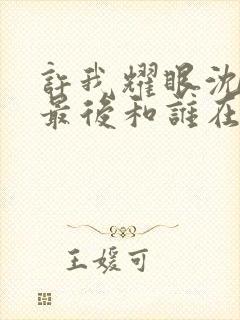 許我耀眼沈
最後和誰在
王媛可